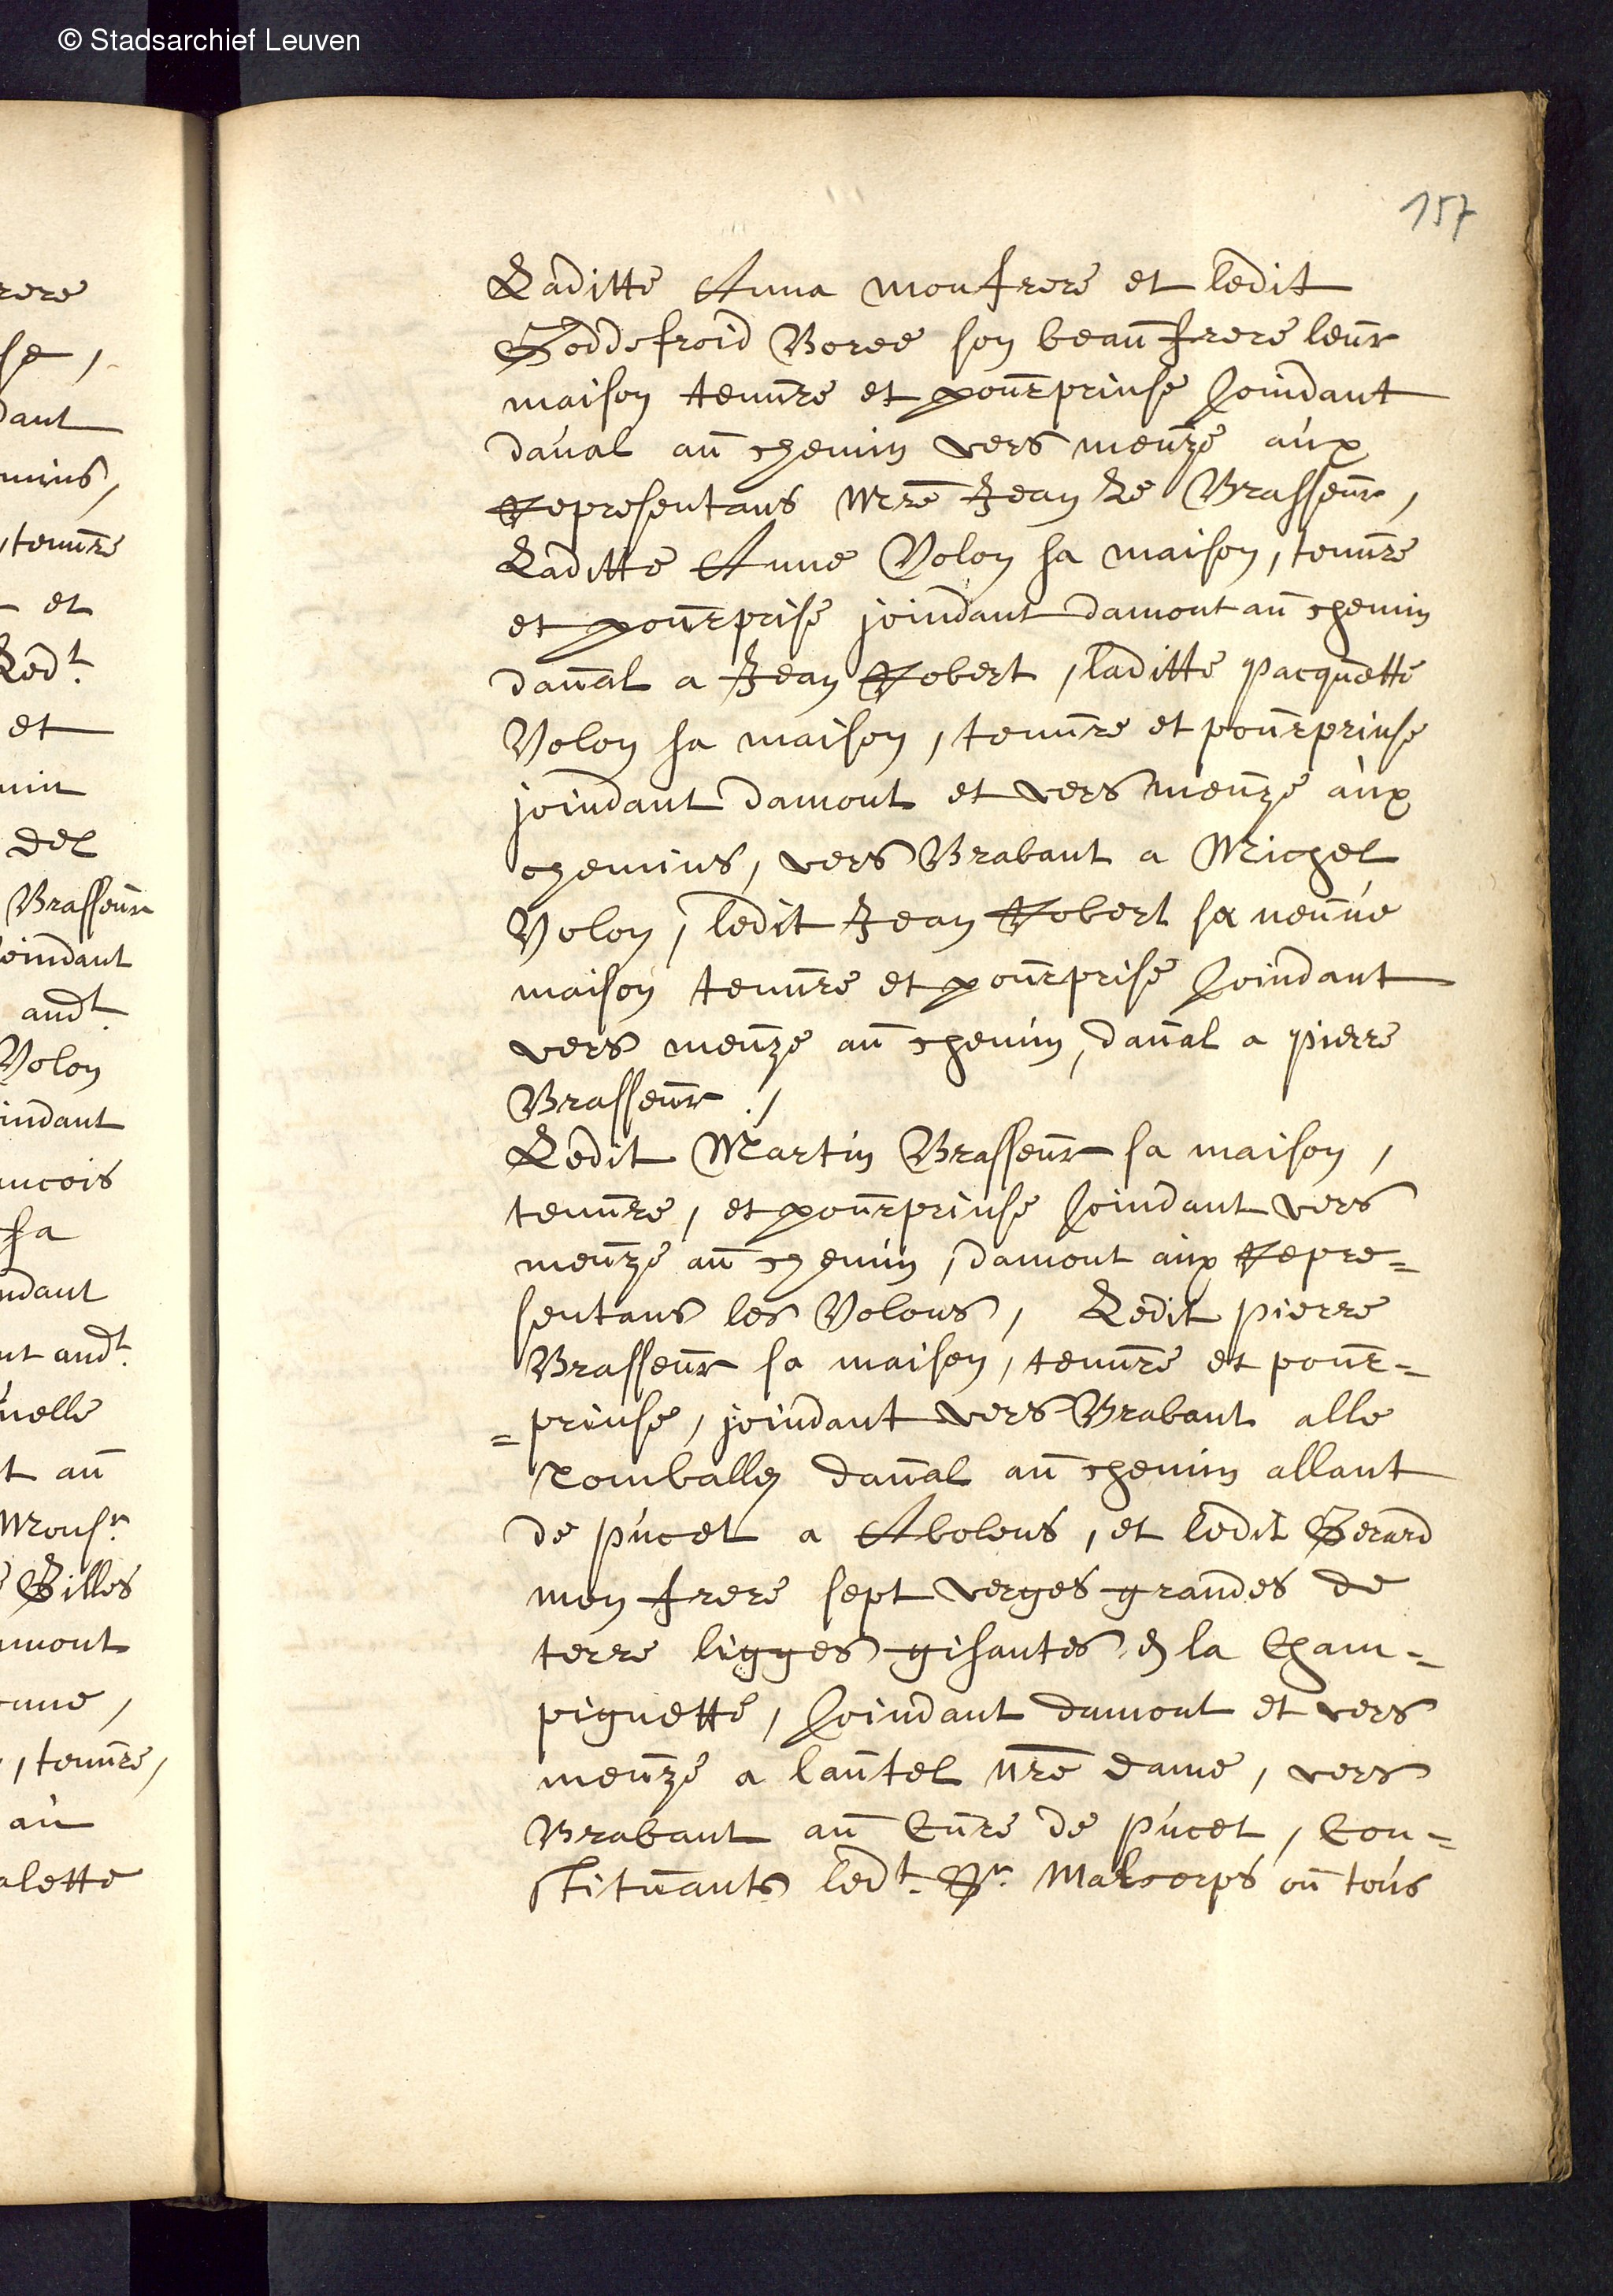 © Stadsarchief Leuven
157
Laditte Anna monfrere et ledit
Goddefroid Boree son beaufrere leur
maison tenure et pourprinse Joindant
daual au chemin vers meuze aux
Representans Mre Jean Le Brasseur,
Laditte Anne Volon sa maison, tenure
et pourprise joindant damont au chemin
daual a Jean Robert, laditte Pacquette
Volon sa maison, tenure et pourprinse
joindant damont et vers meuze aux
chemins, vers Brabant a Michel
Volon, ledit Jean Robert sa neuue
maison tenure et pourprise Joindant
vers meuze au chemin, daual a Pierre
Brasseur ./
Ledit Martin Brasseur sa maison,
tenure, et pourprinse Joindant vers
meuze au chemin, damont aux Repre=
sentans les Volons, Ledit Pierre
Brasseur sa maison, tenure et pour=
=prinse, joindant vers Brabant alle
Tomballe daual au chemin allant
de Pucet a Abolens, et ledit Gerard
mon frere sept verges grandes de
terre ligges gisantes en la Cham=
pignette, Joindant damont et vers
meuze a lautel nre Dame, vers
Brabant au Cure de Pucet, Con=
stituants ledt. Sr. Malcorps ou tous
rere
se,
dant
mins,
, tenure
et
Ledt.
et
min
del
Brasseur
Joindant
audt.
Volon
indant
ancois
sa
ndant
nt audt.
uelle
t au
Monsr.
Gilles
amont
, tenure,
au
alette